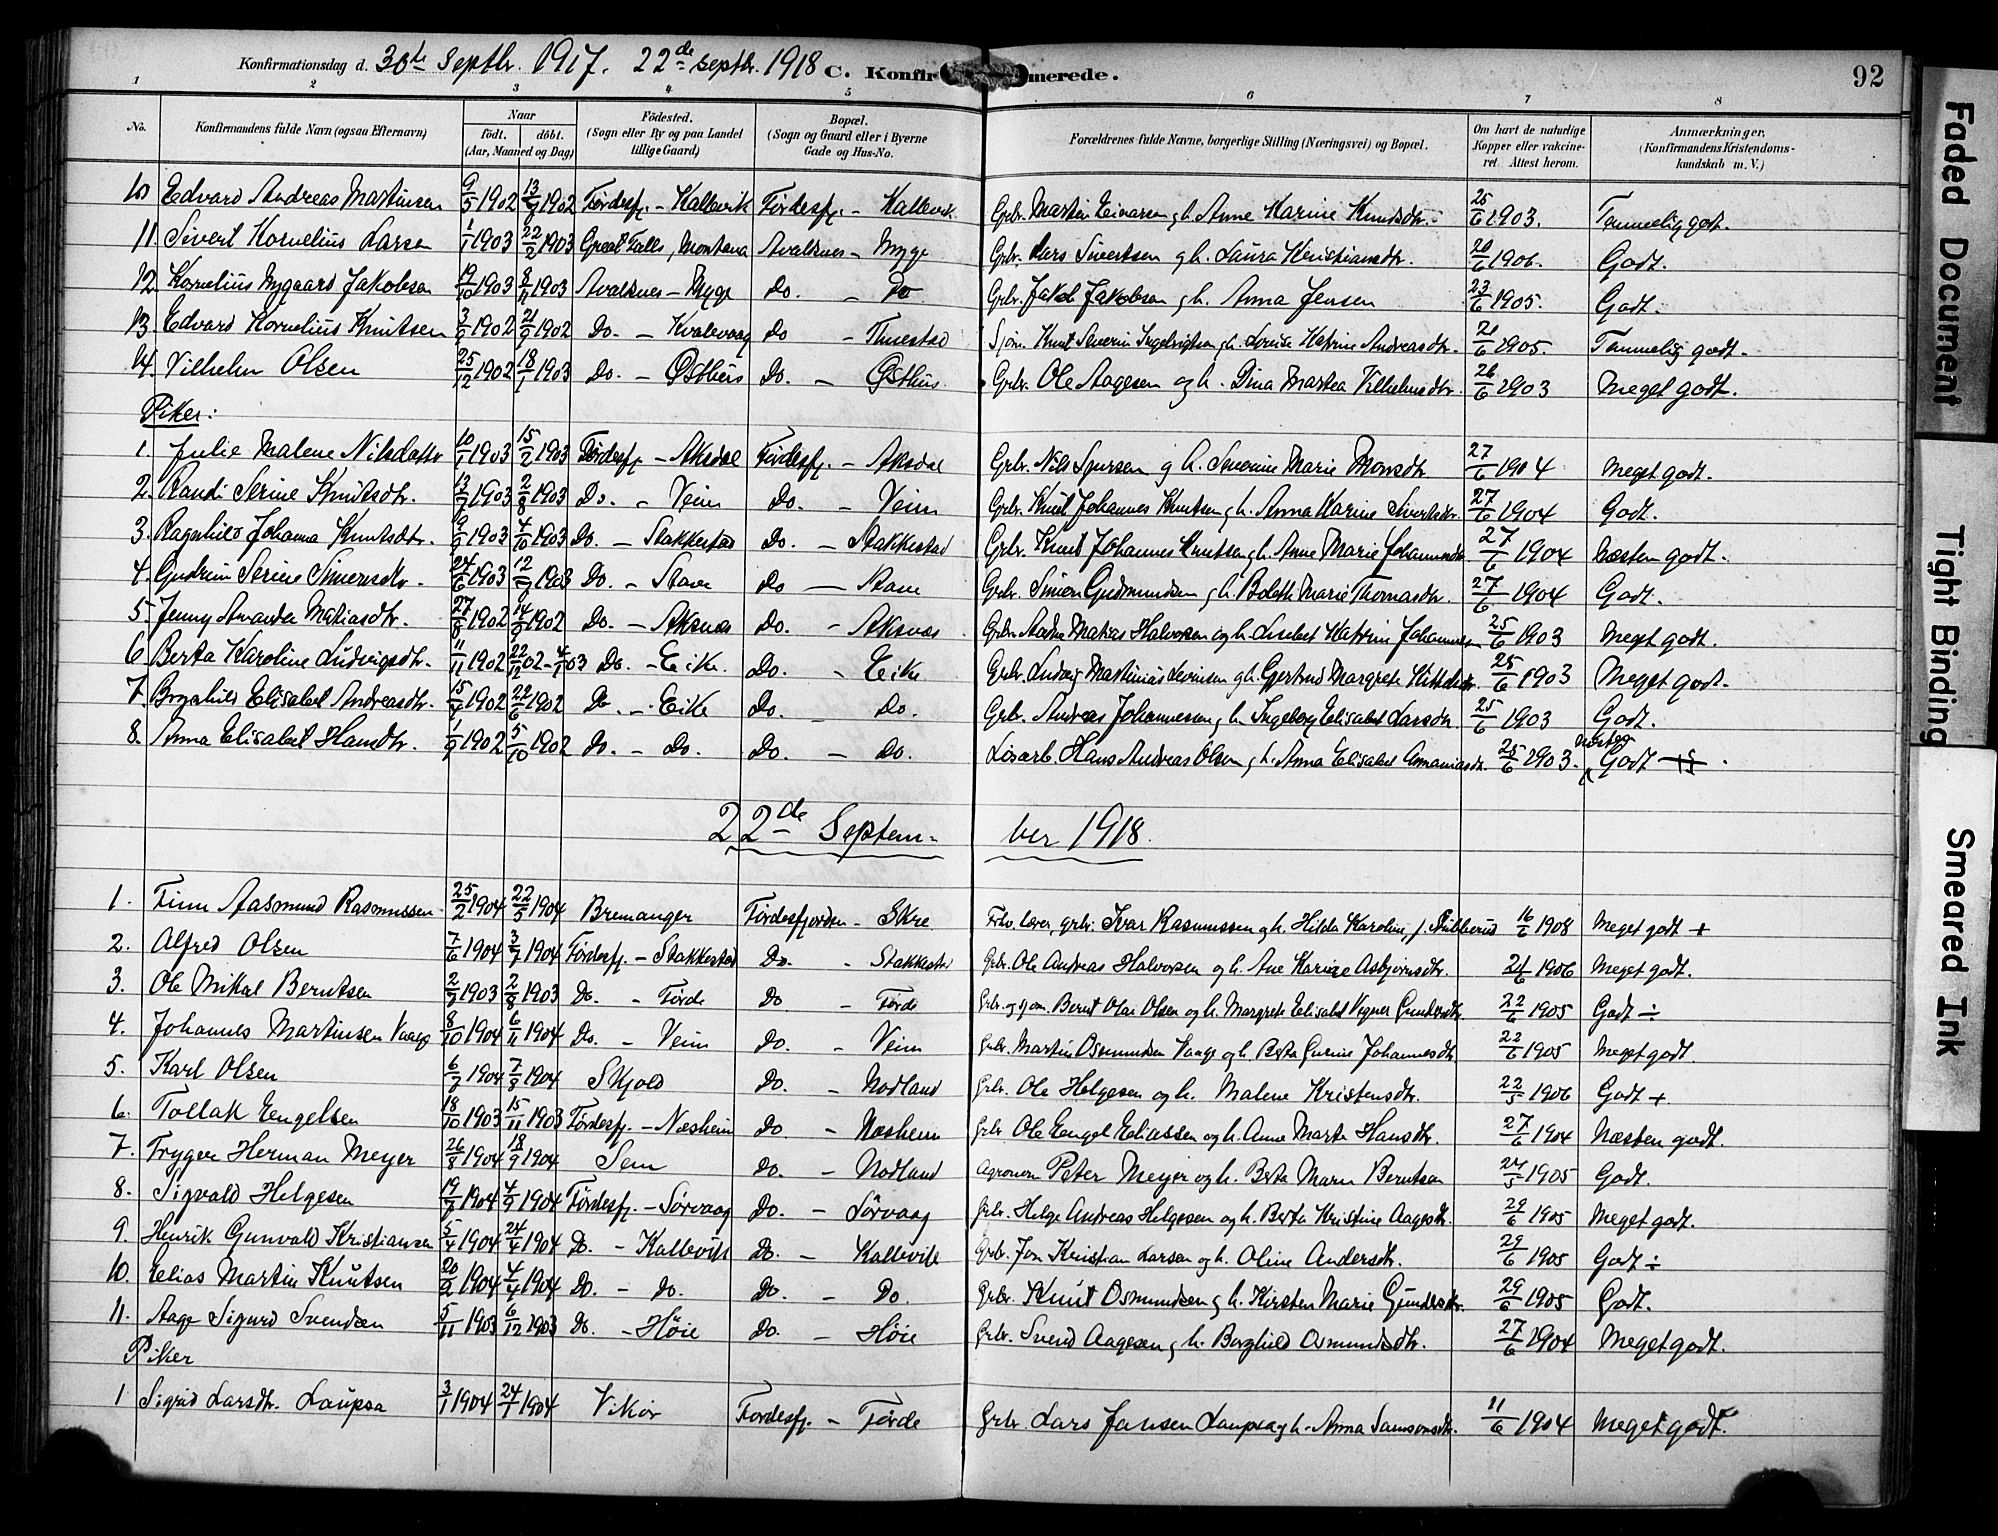 Konfirmationsdag d. 30te Septbr. 1917. 22de septbr. 1918 C. Konfirmerede. 92
1 2 3 4 5 6 7 8
No. Konfirmandens fulde Navn (ogsaa Efternavn) Naar født. døbt. (Aar, Maaned og Dag) Fødested. (Sogn eller By og paa Landet tillige Gaard) Bopæl. (Sogn og Gaard eller i Byerne Gade og Hus-No. Forældrenes fulde Navne, borgerlige Stilling (Næringsvei) og Bopæl. Om havt de naturlige Kopper eller vaccineret. Attest herom. Anmærkninger. (Konfirmandens Kristendomskundskab m. V.)
10 Edvard Andreas Martinsen 9/5 1902 13/7 1902 Førdesfj. - Kallevik Førdesfj. - Kallevik Grbr. Martin Einarsen g h. Anne Karine Knudsdtr. 25/6 1903. Temmelig godt.
11. Sivert Kornelius Larsen 1/1 1903 22/2 1903 Great Falls, Montana Avaldsnes - Myge Grbr. Lars Sivertsen g h. Laura Kristiansdtr. 20/6 1906. Godt.
12 Kornelius Mygaard Jakobsen 19/10 1903 8/11 1903 Avaldsnes - Myge Do - Do Grbr. Jakob Jakobsen g h. Anna Jensen 23/6 1905. Godt.
13. Edvard Kornelius Knutsen 3/9 1902 21/9 1902 Do. - Kvalevaag Do - Tuestad Sjøm. Knut Severin Ingebrigtsen g h. Lovise Katrine Andreasdtr. 21/6 1905. Temmelig godt.
14. Vilhelm Olsen 25/12 1902 18/1 1903 Do. - Østhus Do. - Østhus Grbr. Ole Aagesen og h. Dina Martea Vilhelmsdtr. 26/6 1903 Meget godt.
Piker:
1. Julie Malene Nilsdattr 10/1 1903 15/2 1903 Førdesfj. - Aksdal Førdesfj. - Aksdal Grbr. Nils Sjursen g h. Severine Marie Monsdtr. 27/6 1904 Meget godt.
2. Randi Serine Knutsdtr. 13/7 1903 2/8 1903 Do. - Veim Do. - Veim Grbr. Knut Johannes Knutsen g h. Anna Karine Sivertsdtr. 27/6 1904 Godt.
3. Ragnhild Johanna Knutsdtr. 9/9 1903 4/10 1903 Do. - Stakkestad Do. - Stakkestad Grbr. Knut Johannes Knutsen g h. Anne Marie Johannesdtr 27/6 1904 Næsten godt.
4. Gudrun Serine Simonsdtr. 24/6 1903 12/7 1903 Do. - Stave Do - Stave Grbr. Simon Gudmundsen g h. Bolette Marie Thomasdtr. 27/6 1904 Godt.
5. Jenny Amanda Matiasdtr. 27/8 1902 14/9 1902 Do. - Aksnes Do. - Aksnes Grbr. Matias Halvorsen og h. Lisebet Katrine Johannesen 25/6 1903 Meget godt.
6 Berta Karoline Ludvigsdtr. 11/11 1902 22/12 02 - 4/1 03 Do. - Eike. Do. - Eike. Grbr. Ludvig Martinias Levinsen g h. Gjertrud Margrete Kittelsdtr. 25/6 1903 Meget godt.
7. Borghild Elisabet Andreasdtr. 15/5 1902 22/6 1902 Do. - Eike Do. - Do. Grbr. Andreas Johannessen g h. Ingeborg Elisabet Larsdtr 25/6 1903 Godt.
8. Anna Elisabet Hansdtr. 1/9 1902 5/10 1902 Do. - Do. Do. - Do. Løsarb. Hans Andreas Olsen g h. Anna Elisabet Ananiasdtr. 25/6 1903. Næsten Godt
22de September 1918.
1. Finn Aasmund Rasmussen 25/2 1904 22/5 1904 Bremanger Førdesfjorden - Skre Frhv. lærer, grbr. Ivar Rasmussen g h. Hilda Karoline, f. Stubberud 16/6 1908 Meget godt +
2. Alfred Olsen 7/6 1904 3/7 1904 Førdesfj. - Stakkestad Do. - Stakkestd Grbr. Ole Andreas Halvorsen og h. Ane Karine Asbjørnsdtr. 21/6 1906 Meget godt.
3. Ole Mikal Berntsen 2/7 1903 2/8 1903 Do. - Førde Do - Førde Grbr. og sjøm. Bernt Olai Olsen og h. Margrete Elisabet Vegner Gundersdtr 22/6 1905 Godt ÷
4. Johannes Martinsen Vaage 8/10 1904 6/11 1904 Do. - Veim Do. - Veim Grbr. Martin Osmundsen Vaage g h. Berta Gurine Johannesdtr 22/6 1905 Meget godt.
5. Karl Olsen 6/7 1904 7/8 1904 Skjold Do. - Nodland Grbr. Ole Helgesen og h. Malene Kristensdtr. 22/5 1906 Godt +
6. Tollak Eengelsen 18/10 1903 15/11 1903 Førdesfj. - Næsheim Do - Næsheim Grbr Ole Eengel Eliassen og h. Anne Marta Hansdtr. 27/6 1904 Næsten godt.
7. Trygve Herman Meyer 26/8 1904 18/9 1904 Sem Do. - Nodland Agronom Peter Meyer og h. Berta Marie Berntsen 24/5 1905 Godt.
8. Sigvald Helgesen 19/7 1904 4/9 1904 Førdesfj. - Sørvaag Do. - Sørvaag Grbr. Helge Andreas Helgesen og h. Berta Kristine Aagesdtr. 29/6 1905 Meget godt.
9. Henrik Gunvald Kristiansen 5/4 1904 24/4 1904 Do. - Kallevik Do. - Kallevik Grbr. Jon Kristian Larsen og h. Oline Andersdtr. 29/6 1905 Godt ÷
10. Elias Martin Knutsen 20/2 1904 4/4 1904 Do. - Do. Do. - Do Grbr. Knut Osmundsen g h. Kirsten Marie Gundersdtr. 29/6 1905 Godt.
11. Aage Sigurd Svendsen 5/11 1903 6/12 1903 Do. - Høie Do. - Høie Grbr. Svend Aagesen g h. Borghild Osmundsdtr. 27/6 1904 Meget godt.
Piker
1 Sigrid Larsdtr. Laupsa 3/1 1904 24/1 1904 Vikør Førdesfj. - Førde Grbr. Lars Jansen Laupsa g h. Anna Samsonsdtr. 11/6 1904 Meget godt.
Faded Document
Tight Binding
Smeared Ink